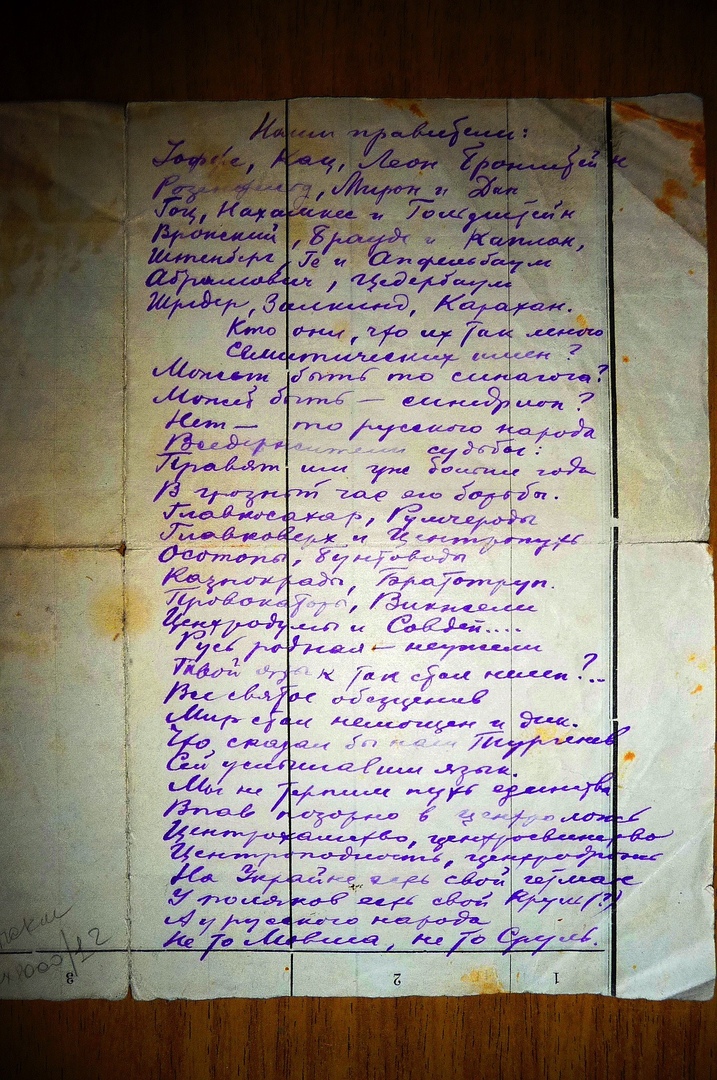 Наши правители:
Иоффе, Кац, Леон Бронштейн
Розенфельд, Мирон и Дан
Гоц, Нахамкес и Гольдштейн
Вронский, Брауде и Каплан,
Штенберг, Ге и Апфельбаум
Абрамович, Цедербаум
Шредер, Залкинд, Карахан.
Кто они, что их так много
Семитических имен?
Может быть то синагога?
Может быть — синедрион?
Нет — то русского народа
Вседержители судьбы:
Правят им уж больше года
В грозный час его борьбы.
Главкосахар, Румчероды
Главковерх и Центропуть
Осотопы, Бунтоводы
Казнокрады, Братотруп.
Провокаторы, Викжели
Центродумы и Совдеп....
Русь родная — неужели
Твой язык так стал нелеп?..
Все святое обесценив
Мир стал немощен и дик.
Что сказал бы нам Тургенев
Сей услышавши язык.
Мы не терпим путь единства
Впав позорно в центроложь
Центрохамство, центросвинство
Центроподлость, центро
На Украйне есть свой гетман
У поляков есть свой Круль(?)
А у русского народа
Не то Мовша, не то Сруль.
3 2 1
1000/12